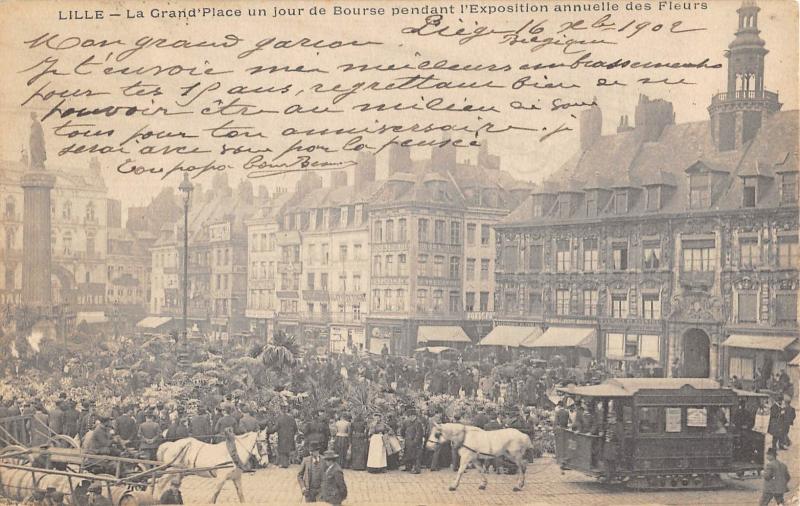 LILLE — La Grand'Place un jour de Bourse pendant l'Exposition annuelle des Fleurs
Liége 16 Xbre 1902
Belgique
Mon grand garcon
Je t'envoie mes meilleurs embrassements
pour tes 18 ans, regrettant bien de ne
pouvoir être au milieu de vous
tous pour ton anniversaire. je
serai avec vous par la pensée
Ton papa